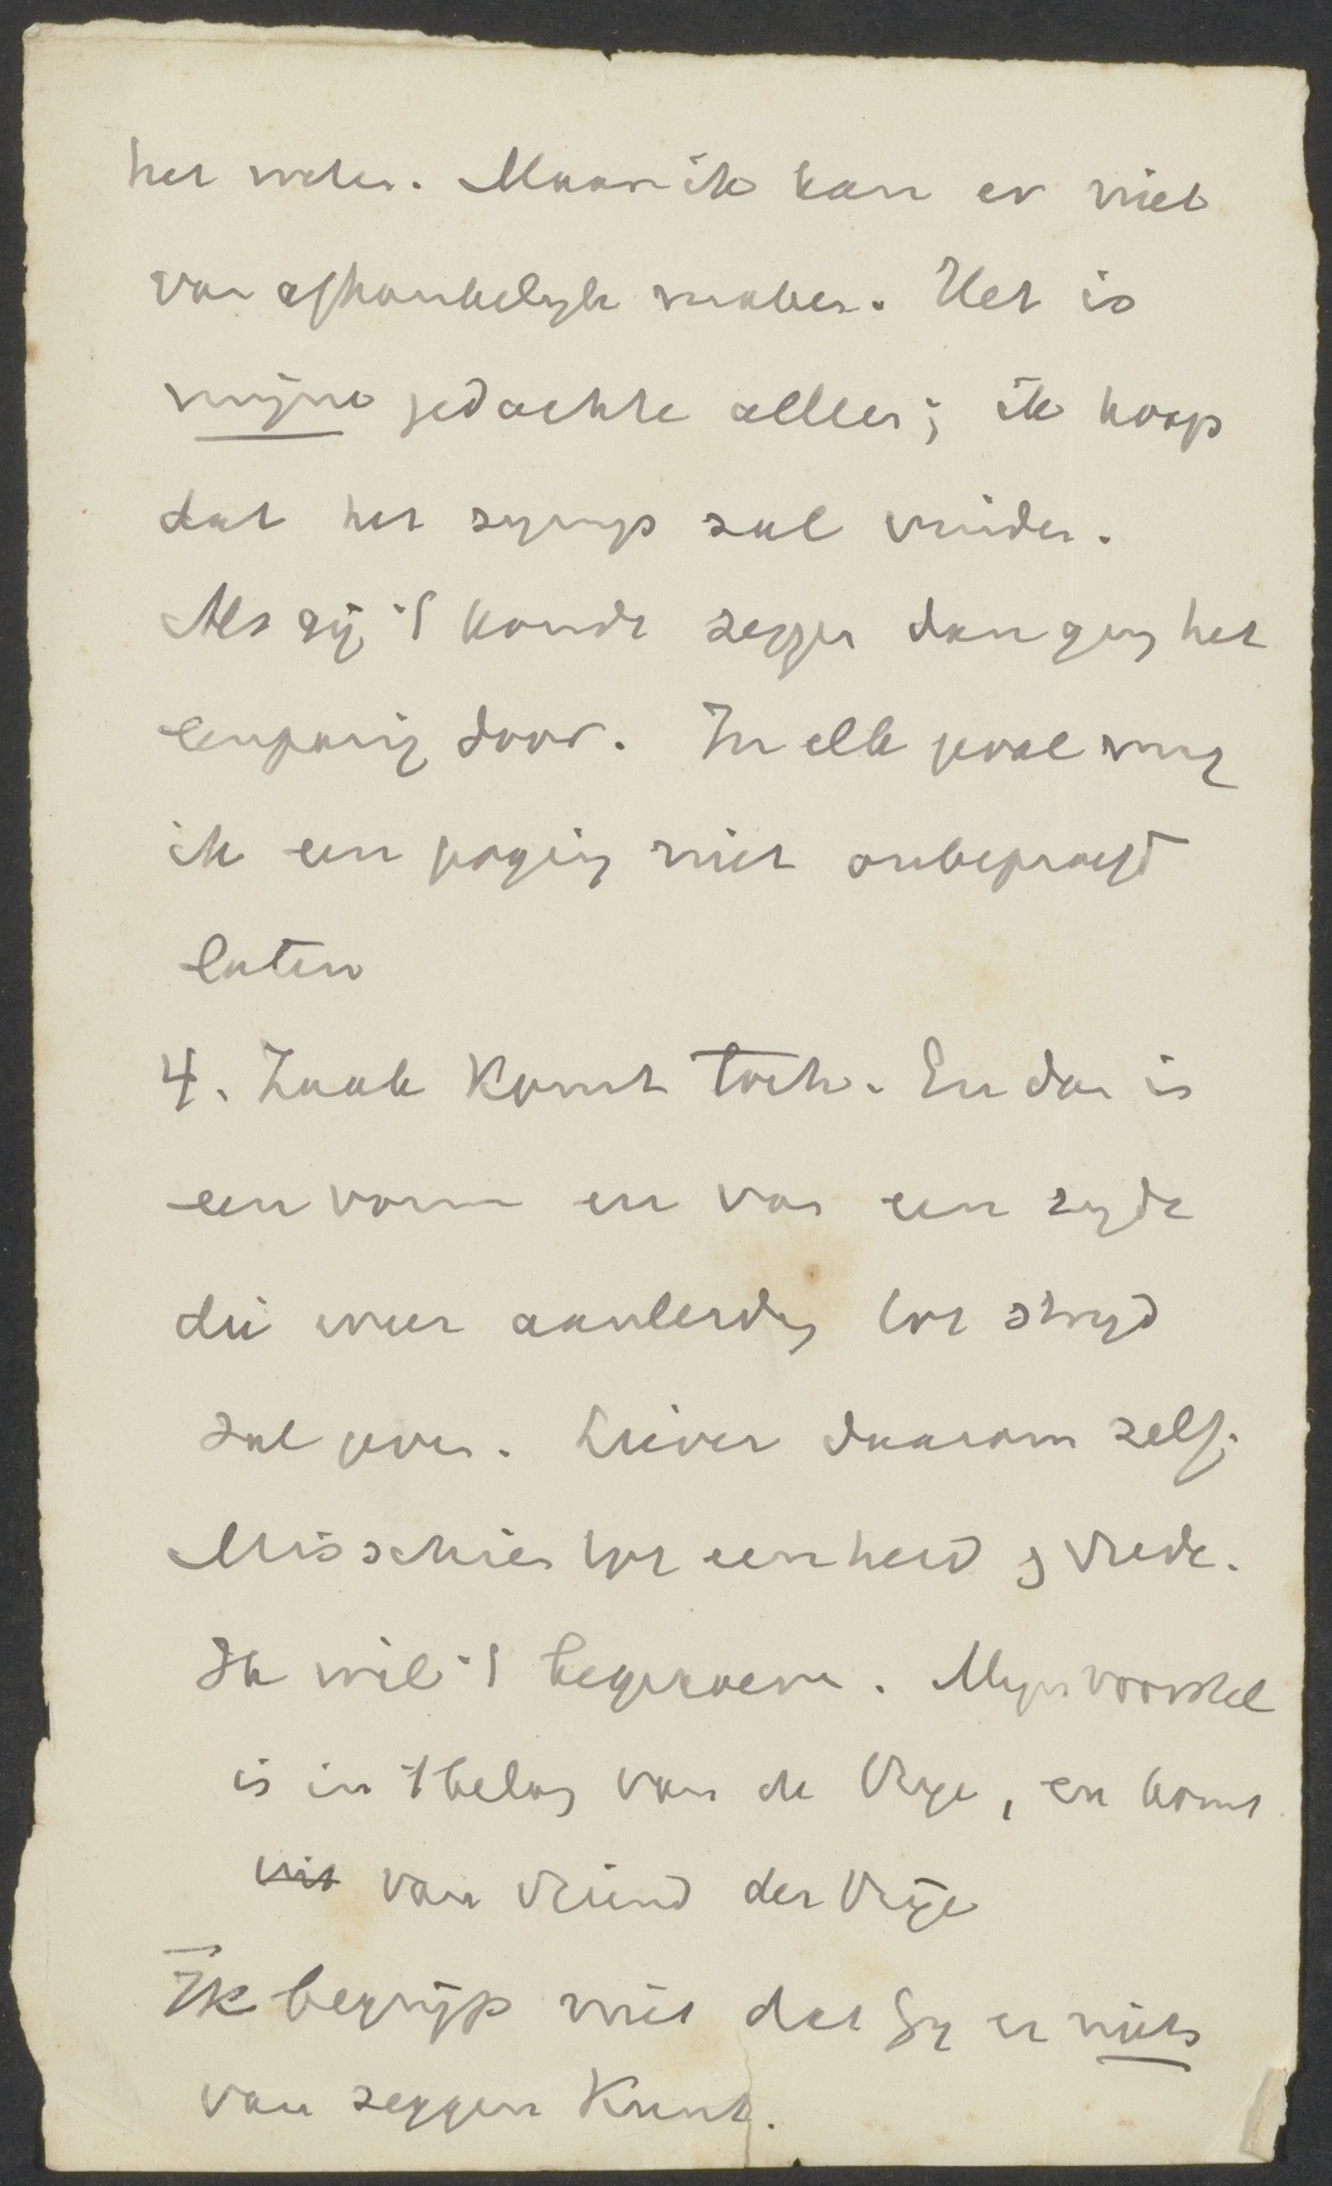 het weten. Maar ik kan er niet
van afhankelyk maken. Het is
mijne gedachte alleen; ik hoop
dat het zyings zal vinden.
Als zij 't konde zeggen dan ging het
eenparig door. In elk geval mag
ik een poging niet onbeproefd
laten
4. Zaak komt toch. En dan in
een vorm en van een zyde
die weer aanleiding tot stryd
zal geven. Liever daarom zelf.
Misschien tot eenheid & vrede.
Ik wil 't beproeven. Myn voorstel
is in 't belang van de Vrye, en komt
uit van vriend der Vrije
Ik begrijp niet dat Gy er niets
van zeggen kunt.